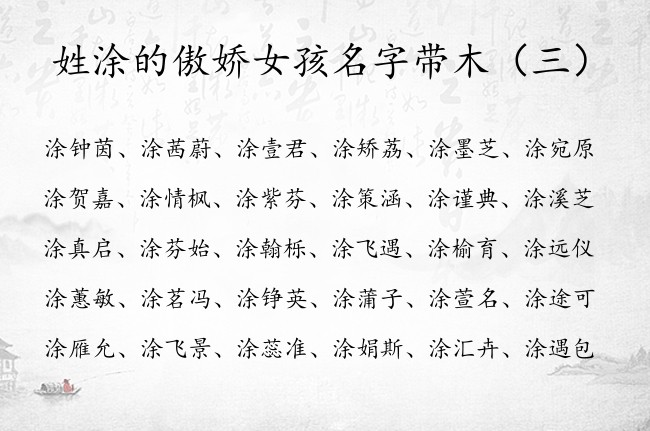 姓涂的傲娇女孩名字带木（三）
涂钟茵、涂茜蔚、涂壹君、涂矫荔、涂墨芝、涂宛原
涂贺嘉、涂情枫、涂紫芬、涂策涵、涂谨典、涂溪芝
涂真启、涂芬始、涂翰栎、涂飞遇、涂榆育、涂远仪
涂蕙敏、涂茗冯、涂铮英、涂蒲子、涂萱名、涂途可
涂雁允、涂飞景、涂蕊准、涂娟斯、涂汇卉、涂遇包